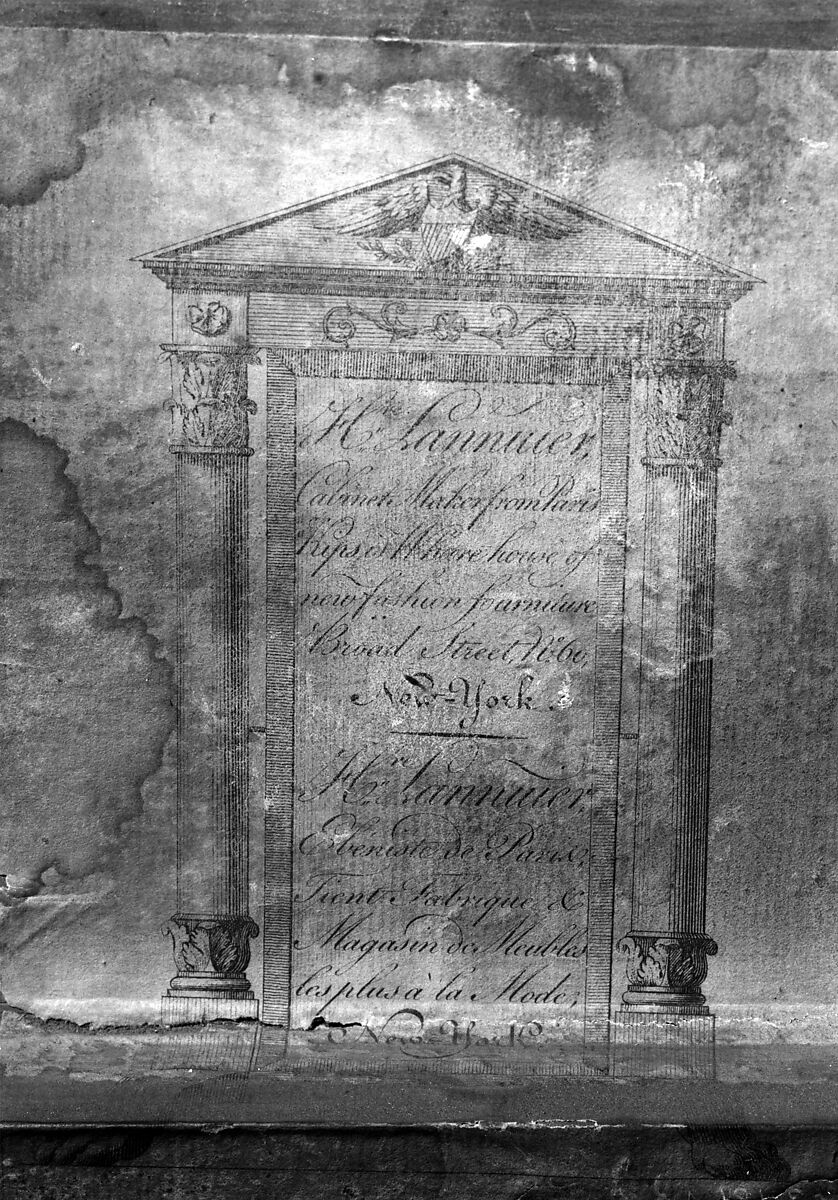 Hre. Lannuier,
Cabinet Maker from Paris
Kips is Whare house of
new fashion fourniture
Broad Street, No. 60,
New-York.
Hre. Lannuier,
Ebéniste de Paris,
Tient Fabrique &
Magasin de Meubles
les plus à la Mode,
New-York.